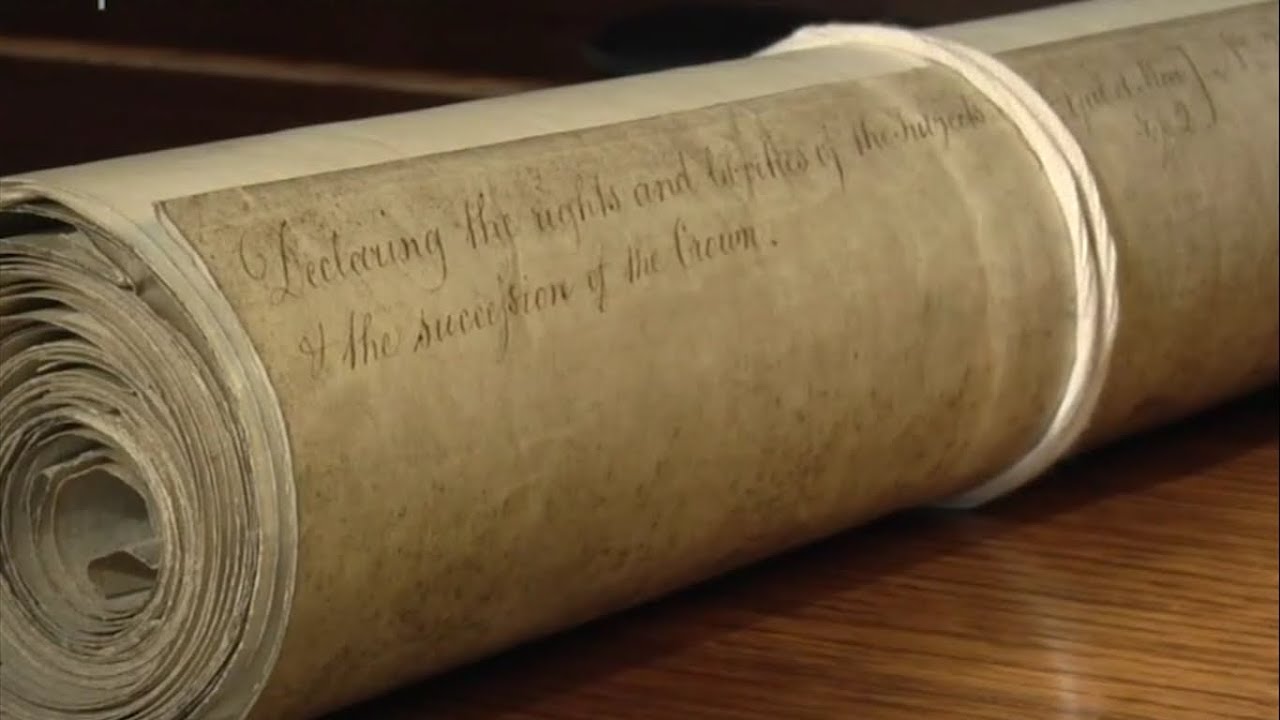 Declaring the rights and liberties of the subjects
& the succession of the Crown.
2